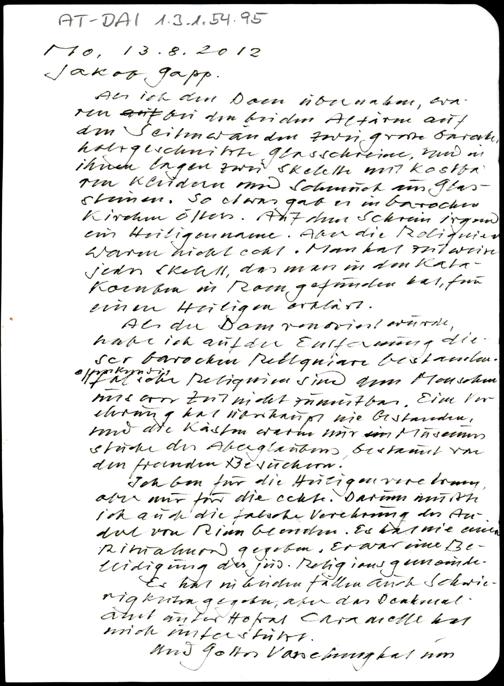 AT-DAI 1.3.1.54.95
Mo, 13.8.2012
Jakob Gapp.
Als ich den Dom übernahm, wa-
ren auf bei den beiden Altären auf
den Seitenwänden zwei große barocke,
holzgeschnitzte Glasschreine, und in
ihnen lagen zwei Skelette mit kostba-
ren Kleidern und Schmuck aus Glas-
steinen. So etwas gab es in barocken
Kirchen öfters. Auf dem Schrein irgend
ein Heiligenname. Aber die Reliquien
waren nicht echt. Man hat zeitweise
jedes Skelett, das man in den Kata-
komben in Rom gefunden hat, für
einen Heiligen erklärt.
Als der Dom renoviert wurde,
habe ich auf der Entfernung die-
ser barocken Reliquiare bestanden.
falsche Reliquien sind dem Menschen
unserer Zeit nicht zumutbar. Eine Ver-
ehrung hat überhaupt nie bestanden,
und die Kästen waren nur ein Museums
stücke des Aberglaubens, bestaunt von
den fremden Besuchern.
Ich bin für die Heiligenverehrung,
aber nur für die echte. Darum mußte
ich auch die falsche Verehrung des An-
derl von Rinn beenden. Es hat nie einen
Ritualmord gegeben. Er war eine Be-
leidigung der jüd. Religionsgemeinde.
Es hat in beiden Fällen auch Schwie-
rigkeiten gegeben, aber das Denkmal-
amt unter Hofrat Caramelle hat
mich unterstützt.
Und Gottes Vorsehung hat uns